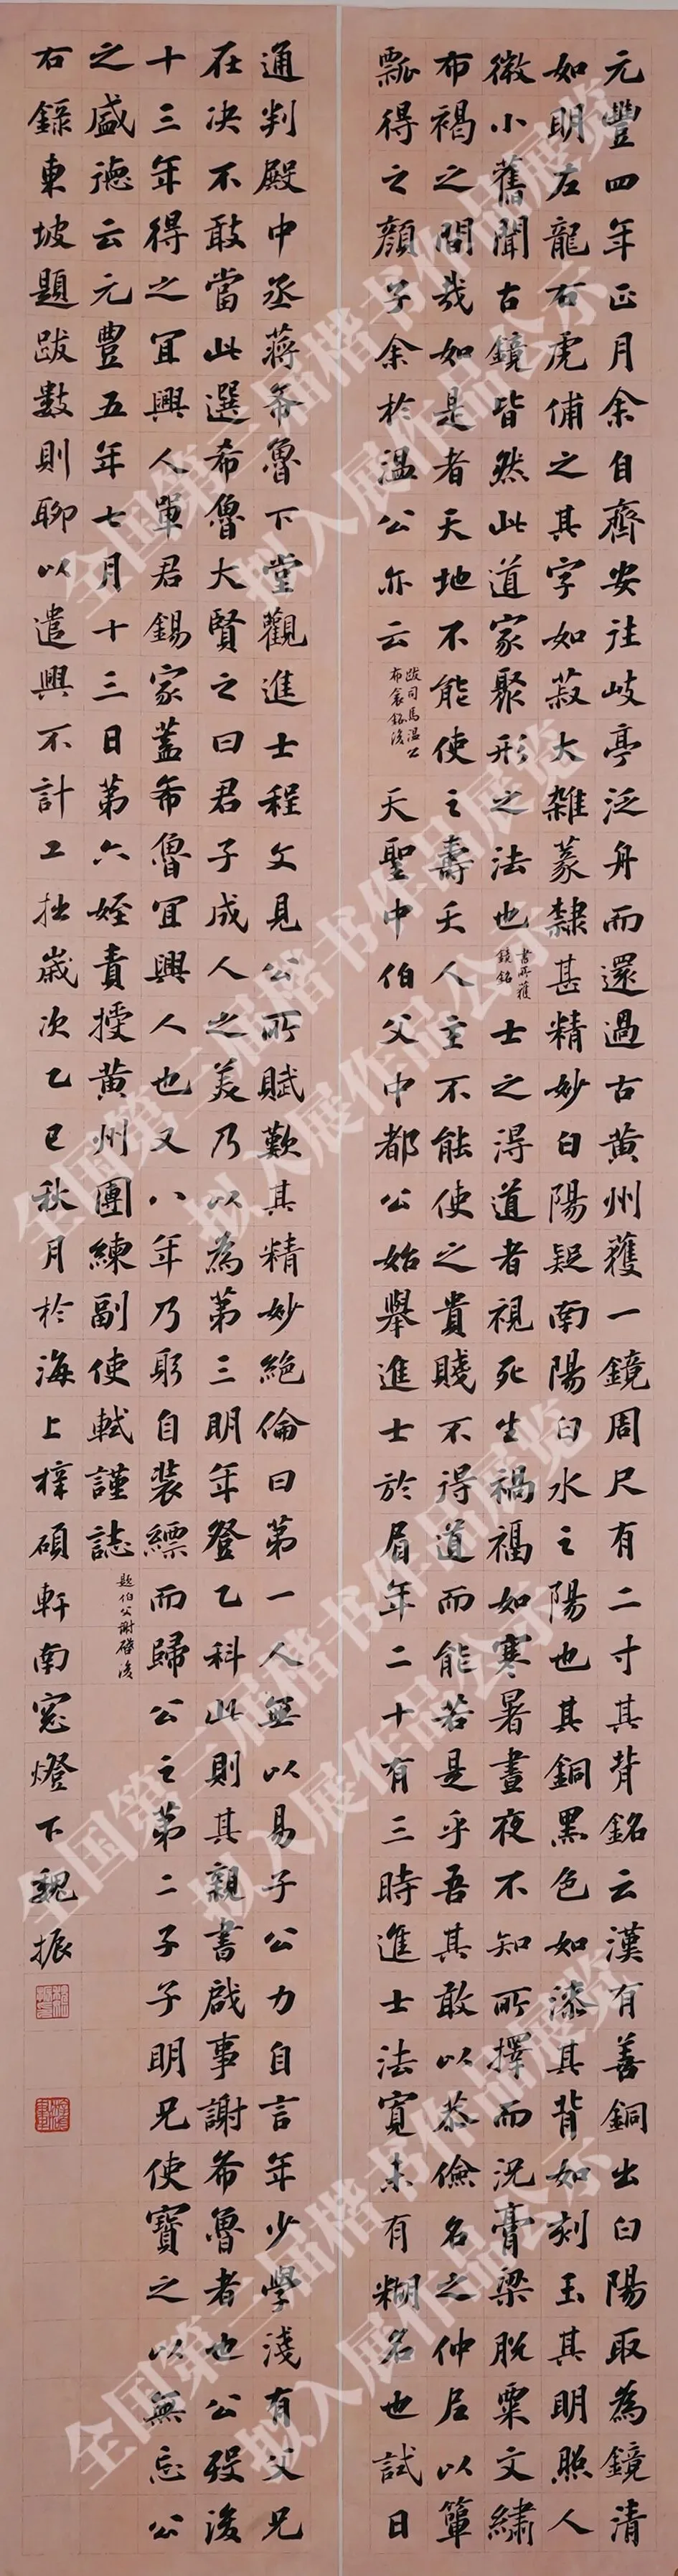 元豐四年正月余自齊安往岐亭泛舟而還過古黃州獲一鏡周尺有二寸其背銘云漢有善銅出白陽取為鏡清
如明左龍右虎俌之其字如菽大雜篆隸甚精妙白陽疑南陽白水之陽也其銅黑色如漆其背如刻玉其明照人
微小舊聞古鏡皆然此道家聚形之法也書所獲鏡銘士之得道者視死生禍福如寒暑晝夜不知所擇而況膏粱脫粟文繡
布褐之間哉如是者天地不能使之壽夭人主不能使之貴賤不得道而能若是乎吾其敢以恭儉名之仲尼以簞
瓢得之顏子余於溫公亦云跋司馬溫公布衾銘後天聖中伯父中都公始舉進士於眉年二十有三時進士法寬未有糊名也試日
通判殿中丞蔣希魯下堂觀進士程文見公所賦歎其精妙絕倫曰第一人無以易子公力自言年少學淺有父兄
在決不敢當此選希魯大賢之曰君子成人之美乃以為第三明年登乙科此則其親書啟事謝希魯者也公歿後
十三年得之宜興人單君錫家蓋希魯宜興人也又八年乃躬自裝縹而歸公之第二子子明兄使寶之以無忘公
之盛德云元豐五年七月十三日第六姪責授黃州團練副使軾謹誌題伯父謝啓後
右錄東坡題跋數則聊以遣興不計工拙歲次乙巳秋月於海上梓碩軒南窓燈下魏振
全国第三届楷书作品展览
拟入展作品公示
全国第三届楷书作品展览
拟入展作品公示
全国第三届楷书作品展览
拟入展作品公示
全国第三届楷书作品展览
拟入展作品公示